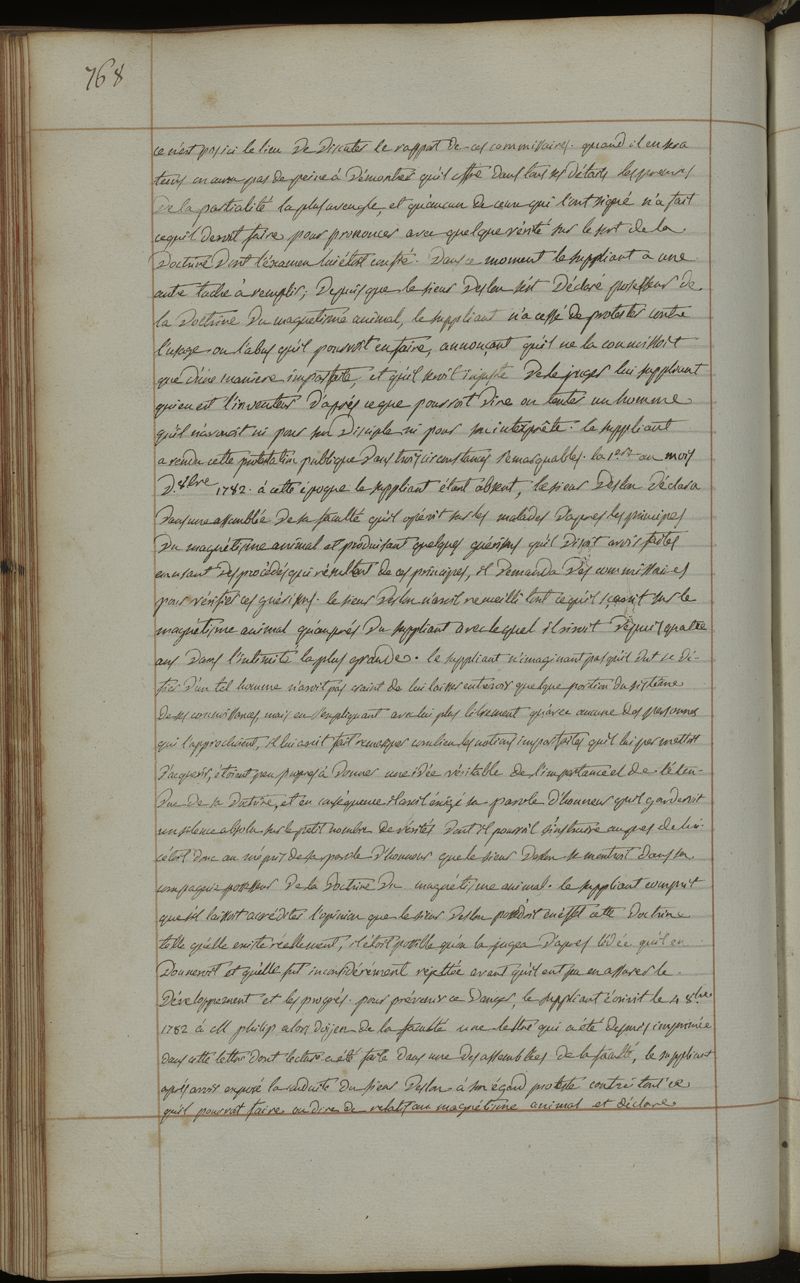 768
ce n'est pas ici le lieu de discuter le rapport de ces commissaires. quand il en sera
tems on aura pas de peine à démontrer qu'il offre dans tous ses détails les preuves
de la partialité la plus aveugle, et qu'aucun de ceux qui l'ont signé n'a fait
ce qu'il devoit faire pour prononcer avec quelque vérité sur le sort de la
doctrine dont l'examen lui étoit confié. Dans ce moment le suppliant a une
autre tache à remplir; Depuis que le sieur Deslon s'est déclaré possesseur de
la doctrine du magnetisme animal, le suppliant n'a cessé de protester contre
l'usage ou l'abus qu'il pourroit en faire, annonçant qu'il ne la connoissoit
que d'une maniere imparfaite, et qu'il seroit injuste de le juger lui suppliant
qui en est l'inventeur d'après ce que pourroit dire ou tenter un homme
qu'il n'avouoit ni pour son disciple ni pour son interprête. le suppliant
a rendu cette protestation publique dans trois circonstances remarquables. la 1ere au mois
d'8bre 1782. à cette époque le suppliant étant absent, le sieur Deslon déclara
dans une assemblée de sa faculté qu'il opéroit sur les malades d'après les principes
du magnétisme animal et produisant quelques guérisons qu'il disoit avoir faites
en usant des procédés qui résultent de ces principes, il demanda des commissaires
pour vérifier ces guérisons. le sieur Deslon n'avoit recueilli tout ce qu'il sçavoit sur le
magnétisme animal qu'auprés du suppliant avec lequel il vivoit depuis quatre
ans dans l'intimité la plus grande. le suppliant n'imaginant pas qu'il dut se dé-
fier d'un tel homme n'avoit pas craint de lui laisser entrevoir quelque portion du sistême
de ses connoissances, mais en s'expliquant avec lui plus librement qu'avec aucune des personnes
qui l'approchoient, il lui avoit fait remarquer combien les notions imparfaites qu'il lui permettoit
d'acquerir, étoient peu propres à donner une idée véritable de l'importance et de l'éten-
due de sa doctrine, et en conséquence il avoit éxigé sa parole d'honneur qu'il garderoit
un silence absolu sur le petit nombre de vérités dont il pourroit s'instruire auprès de lui.
c'étoit donc au mépris de sa parole d'honneur que le sieur Deslon se montroit dans sa
compagnie possesseur de la doctrine du magnétisme animal. le suppliant comprit
que s'il laissoit accréditer l'opinion que le sieur Deslon possédoit en effet cette doctrine
telle qu'elle existe réellement, il étoit possible qu'on la jugea d'après l'idée qu'il en
donneroit et qu'elle fut inconsidérément rejettée avant qu'il eut pu en assurer le
développement et les progrés. pour prévenir ce danger, le suppliant écrivit le 4 8bre
1782 à M philip alors doijen de la faculté une lettre qui a été depuis imprimée
dans cette lettre dont lecture a été faite dans une des assemblées de la faculté, le suppliant
après avoir exposé la conduite du sieur Deslon à son égard proteste contre tout ce
qu'il pourrat faire ou dire de relatif au magnétisme animal et déclare